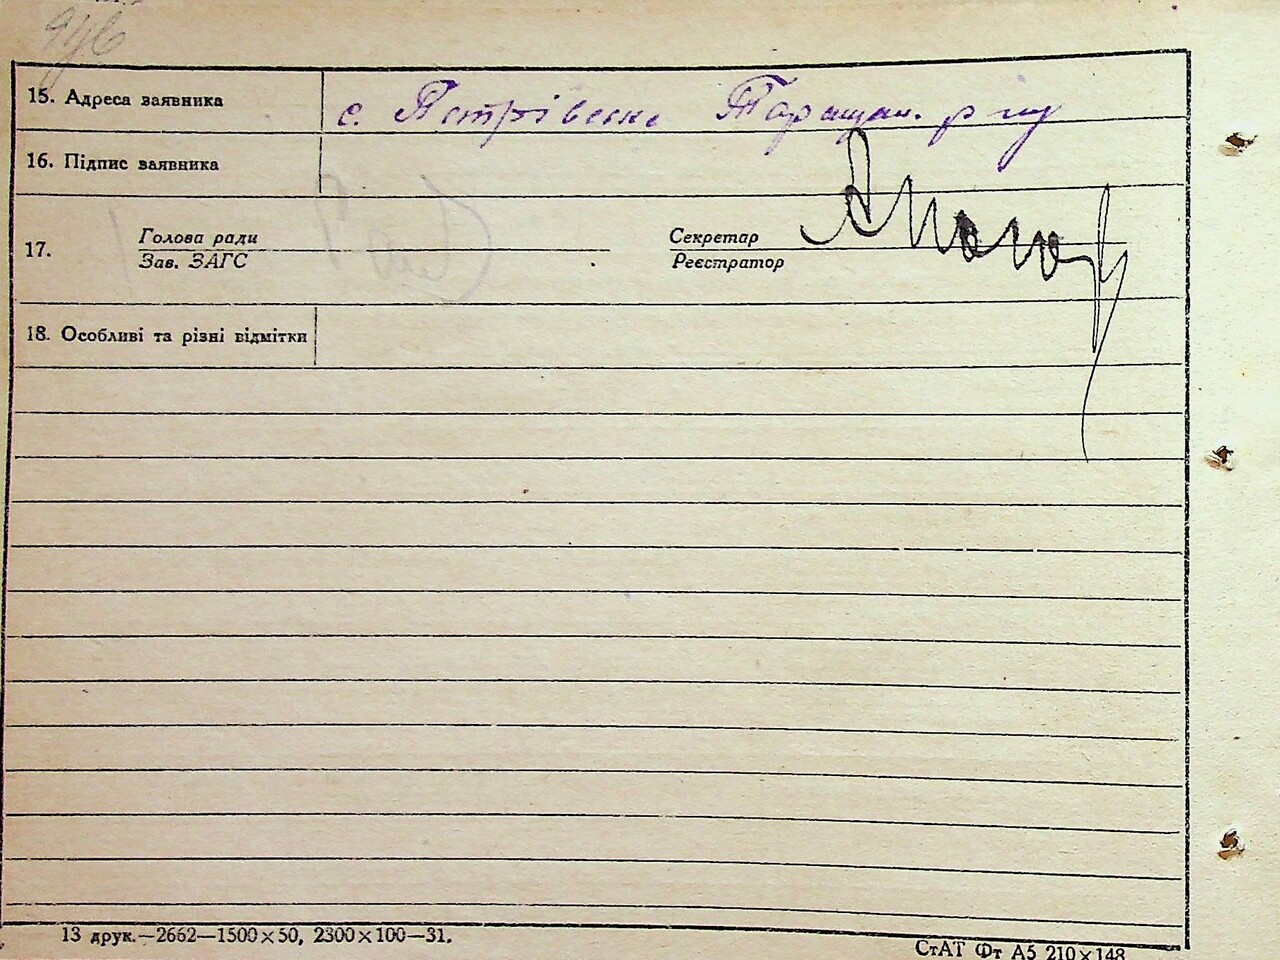 15. Адреса заявника с. Ястрівенька Таращан. р-ну
16. Підпис заявника
17. Голова ради Секретар
Зав. ЗАГС Реєстратор
18. Особливі та різні відмітки
13 друк.—2662—1500×50, 2300×100—31.
СтАТ Фт А5 210×148